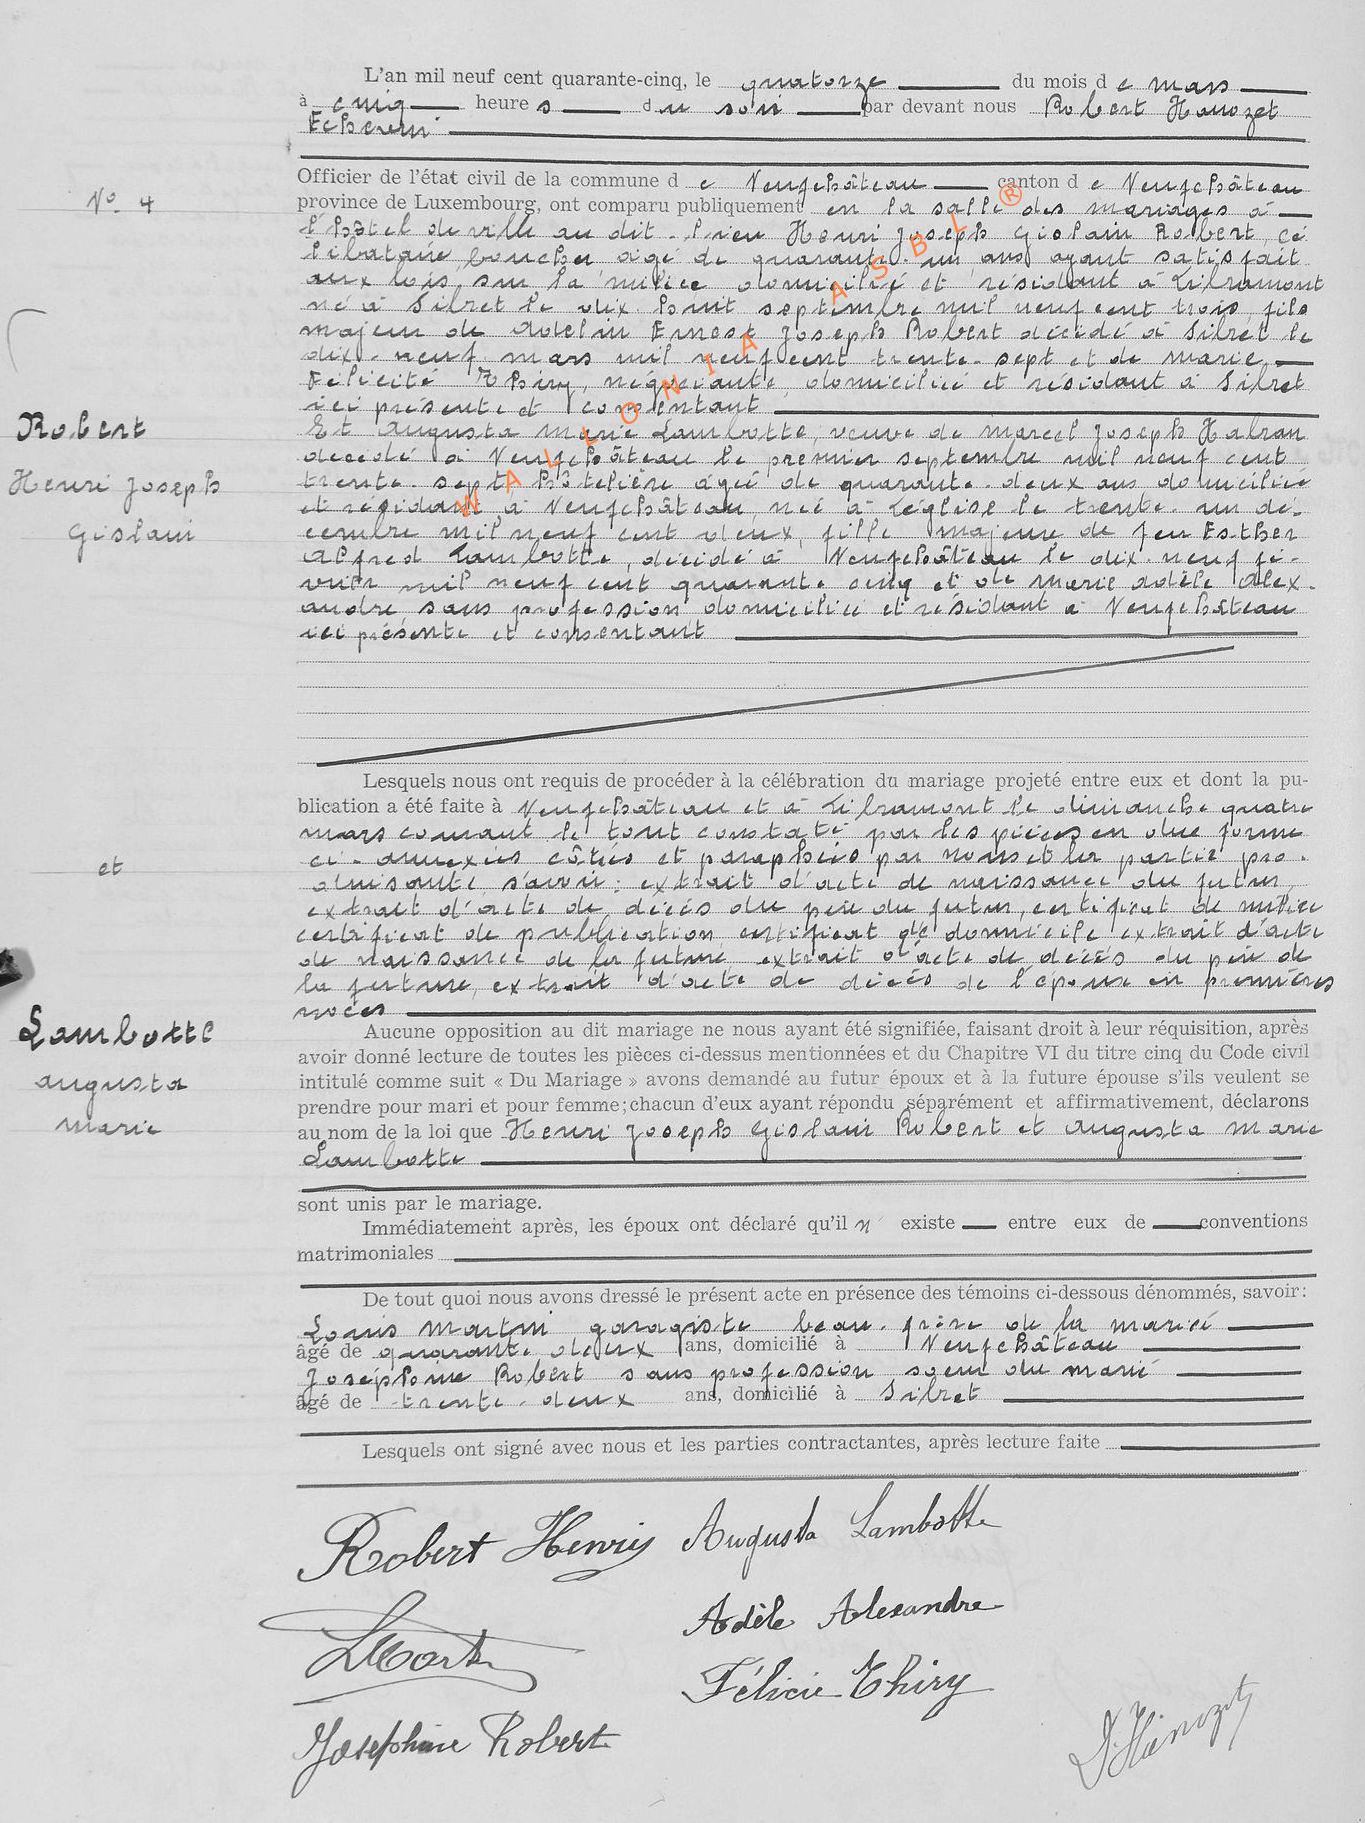 L'an mil neuf cent quarante-cinq, le quatorze du mois d e mars
à cinq heure s du soir par devant nous Robert Hanozet
Echevin
Officier de l'état civil de la commune d e Neufchâteau canton d e Neufchâteau
N° 4
province de Luxembourg, ont comparu publiquement en la salle des mariages à
l'hôtel de ville au dit - lieu Henri Joseph Gislain Robert, cé
libataire, boucher âgé de quarante - un ans ayant satisfait
aux lois sur la milice domicilié et résidant à Libramont
né à Sibret le dix - huit septembre mil neuf cent trois, fils
majeur de Adelin Ernest Joseph Robert décédé à Sibret le
dix - neuf mars mil neuf cent trente - sept et de Marie
Félicité Thiry, négociante, domiciliée et résidant à Sibret
ici présente et consentant
Et Augusta Marie Lambotte, veuve de Marcel Joseph
décédé à Neufchâteau le premier septembre mil neuf cent
trente - sept hôtelière âgée de quarante - deux ans domiciliée
et résidant à Neufchâteau née à Léglise le trente - un dé-
cembre mil neuf cent deux, fille majeure de feu Esther
Alfred Lambotte, décédé à Neufchâteau le dix - neuf fé-
vrier mil neuf cent quarante cinq et de Marie Adèle Alex-
andre sans profession domiciliée et résidant à Neufchâteau
ici présente et consentant
Robert
Henri Joseph
Gislain
Lesquels nous ont requis de procéder à la célébration du mariage projeté entre eux et dont la pu-
blication a été faite à Neufchâteau et à Libramont le dimanche quatre
mars courant le tout constaté par les pièces en due forme
ci - annexées côtées et paraphées par nous et la partie pro-
duisante, savoir : extrait d'acte de naissance du futur,
extrait d'acte de décès du père du futur, certificat de milice
certificat de publication certificat de domicile extrait d'acte
de naissance de la future extrait d'acte de décès du père de
la future, extrait d'acte de décès de l'époux en premières
noces
et
Lambotte
Augusta
Marie
Aucune opposition au dit mariage ne nous ayant été signifiée, faisant droit à leur réquisition, après
avoir donné lecture de toutes les pièces ci-dessus mentionnées et du Chapitre VI du titre cinq du Code civil
intitulé comme suit « Du Mariage » avons demandé au futur époux et à la future épouse s'ils veulent se
prendre pour mari et pour femme; chacun d'eux ayant répondu séparément et affirmativement, déclarons
au nom de la loi que Henri Joseph Gislain Robert et Augusta Marie
Lambotte
sont unis par le mariage.
Immédiatement après, les époux ont déclaré qu'il n' existe entre eux de conventions
matrimoniales
De tout quoi nous avons dressé le présent acte en présence des témoins ci-dessous dénommés, savoir:
Louis Martin garagiste beau - frère de la mariée
âgé de quarante deux ans, domicilié à Neufchâteau
Joséphine Robert sans profession soeur du marié
âgé de trente - deux ans, domicilié à Sibret
Lesquels ont signé avec nous et les parties contractantes, après lecture faite
Robert Henri Augusta Lambotte
Adèle Alexandre
LMartin
Félicie Thiry
Joséphine Robert
Hanozet
WALLONIA ASBL ®